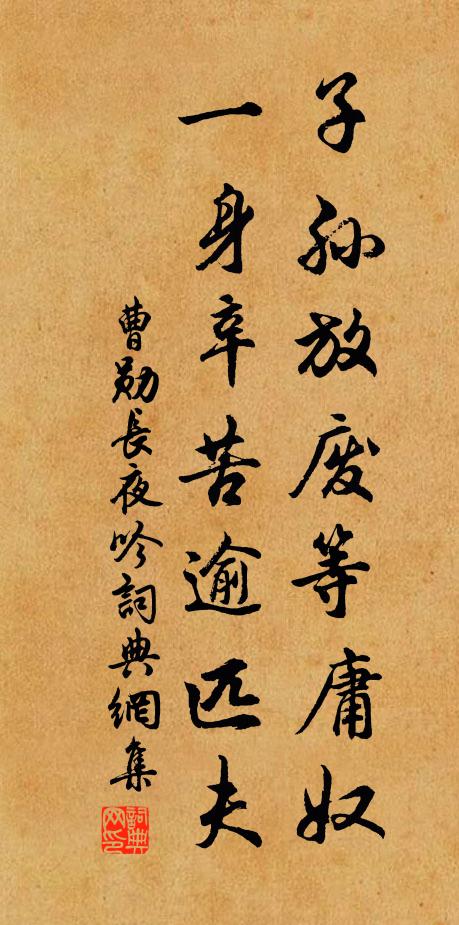 子孙放废等庸奴
一身辛苦逾匹夫
曹勛長夜吟詞典網集
詞典网印